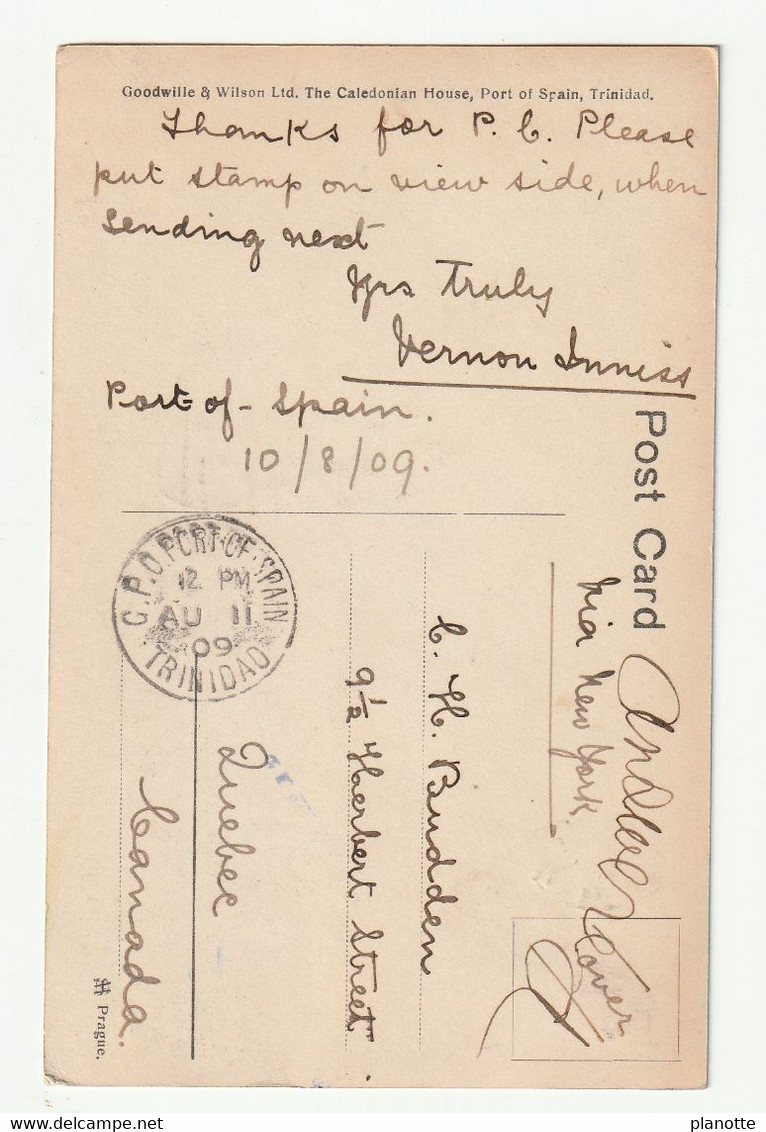 Goodwille & Wilson Ltd. The Caledonian House, Port of Spain, Trinidad.
Thanks for P. C. Please
put stamp on view side, when
sending next
Yrs Truly
Vernon Inniss
Port-of-Spain.
10/8/09.
Post Card
Via New York
over
C. H. Budden
9½ Herbert Street
Quebec
Canada.
G.P.O. PORT-OF-SPAIN
12 PM
AU 11
09
TRINIDAD
Prague.
planotte